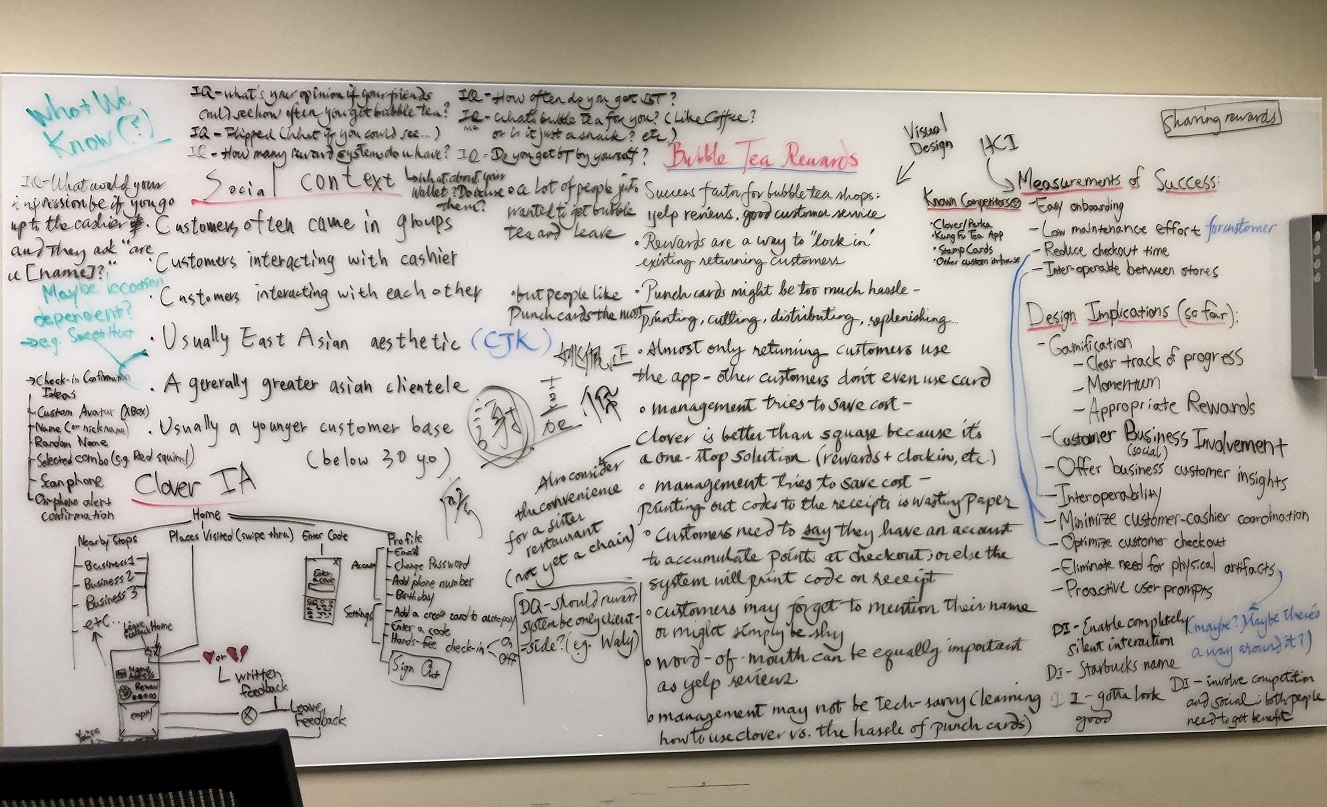 What We
Know(?)
IQ-what's your opinion if your friends
could see how often you get bubble tea?
IQ-Flipped (what if you could see...)
IQ-How many reward system do u have?
↳what about your
wallet? Do u use
them?
IQ-How often do you get BT?
IQ-What's bubble tea for you? (Like Coffee?
or is it just a snack? etc.)
IQ-Do you get BT by yourself?
IQ-What would your
impression be if you go
up to the cashier
and they ask "are
u [name]?"
Maybe location
dependent?
→eg. Sweet Hut
Social context
• Customers often came in groups
• Customers interacting with cashier
• Customers interacting with each other
• Usually East Asian aesthetic (CJK)
• A generally greater asian clientele
• Usually a younger customer base
(below 30 yo)
• a lot of people just
wanted to get bubble
tea and leave
• but people like
Punch cards the most
→Check-in Confirmation
Ideas
-Custom Avatar (XBox)
-Name (or nickname)
-Random Name
-Selected combo (e.g. Red squirrel)
-Scan phone
-On-phone alert
confirmation
Clover IA
Home
Nearby Stops
-Business 1
-Business 2
-Business 3
etc...
Places Visited (swipe thru)
Enter Code
Enter
a code
Profile
Account
-Email
-Change Password
-Add phone number
-Birthday
Settings
-Add a credit card to autopay
-Enter a code
-Hands-free check-in
On
Off
Sign Out
Name
Address
Reward
empty
or
written
feedback
Leave
Feedback
Also consider
the convenience
for a sister
restaurant
(not yet a chain)
DQ-should reward
system be only client
-side? (e.g. Waly)
Bubble Tea Rewards
Success factor for bubble tea shops:
yelp reviews, good customer service
• Rewards are a way to "lock in"
existing returning customers
• Punch cards might be too much hassle-
printing, cutting, distributing, replenishing...
• Almost only returning customers use
the app-other customers don't even use card
• management tries to save cost-
clover is better than square because it's
a one-stop solution (rewards + clockin, etc.)
• management tries to save cost-
printing out codes to the receipts is wasting paper
• Customers need to say they have an account
to accumulate points at checkout; or else the
system will print code on receipt
• customers may forget to mention their name
or might simply be shy
• word-of-mouth can be equally important
as yelp reviews
• management may not be tech-savvy (learning
how to use clover vs. the hassle of punch cards)
Visual
Design
HCI
Sharing rewards
Known Competitors
• Clover/Perka
• Kung Fu Tea App
• Stamp Cards
• Other custom in-house
Measurements of Success:
-Easy onboarding
-Low maintenance effort for customer
-Reduce checkout time
-Inter-operable between stores
Design Implications (so far):
-Gamification
-Clear track of progress
-Momentum
-Appropriate Rewards
-Customer Business Involvement
(social)
-Offer business customer insights
-Interoperability
-Minimize customer-cashier coordination
-Optimize customer checkout
-Eliminate need for physical artifacts
-Proactive user prompts
DI-Enable completely
silent interaction
(maybe?) Maybe there's
a way around it!)
DI-Starbucks name
I-gotta look
good
DI-involve competition
and social; both people
need to get benefit